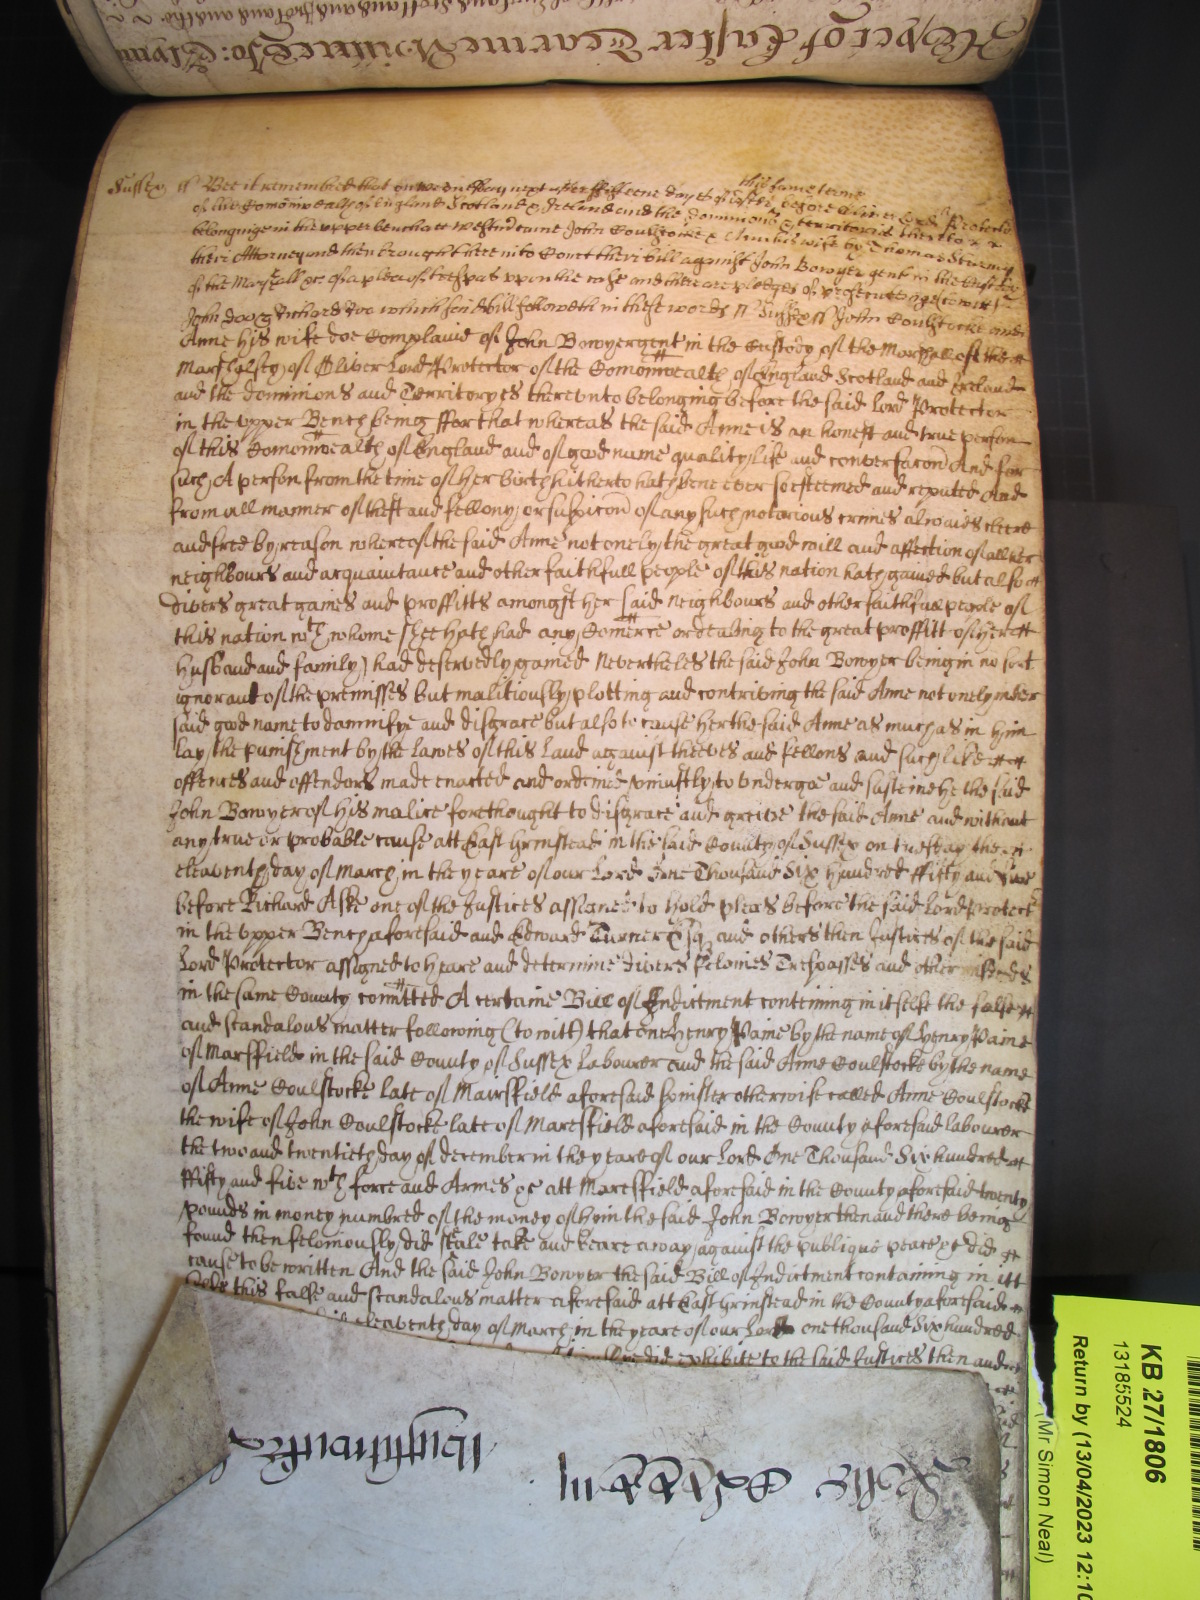 Yet of Easter Tearme Witnes Jo:
Sussex ss Bee it remembred that on wednesday next after fifteene dayes of Easter this same terme before Oliver Lord Protector
of the Comonwealth of England Scotland & Ireland and the dominions & territories thereto
belonginge in the upper bench att Westmr came John Coulstocke & Anne his wife by Thomas Sturmy
their Attorney and then brought here into Court their bill against John Bowyer gent in the Custody
of the Marshall &c of a plea of trespas upon the case and there are pledges of prosecuting to witt
John doo & Richard Roo which said bill followeth in these words ss Sussex ss John Coulstocke and
Anne his wife doe Complaine of John Bowyer gent in the Custody of the Marshall of the
Marshalsey of Oliver Lord Protector of the Comonwealth of England Scotland and Ireland
and the dominions and Territoryes thereunto belonging before the said Lord Protector
in the Upper Bench being ffor that whereas the said Anne is an honest and true person
of this Comonwealth of England and of good name quality life and conversacon And for
such A person from the time of her birth hitherto hath bene ever so esteemed and reputed And
from all manner of theft and fellony or suspicon of any such notorious crimes alwaies cleere
and free by reason whereof the said Anne not onely the great good will and affection of all her
neighbours and acquaintance and other faithfull people of this nation hath gained but also
divers great gaines and proffitts amongst her said neighbours and other faithfull people of
this nation wth whome shee hath had any Comerce or dealing to the great proffitt of her
husband and family had deservedly gained Nevertheles the said John Bowyer being in no sort
ignorant of the premisses but malitiously plotting and contriving the said Anne not onely in her
said good name to damnifye and disgrace but also to cause her the said Anne as much as in him
lay the punishment by the Lawes of this Land against theeves and fellons and such like
offences and offendors made enacted and ordeined uniustly to undergoe and susteine he the said
John Bowyer of his malice forethought to disgrace and greive the said Anne and without
any true or probable cause att East Grinstead in the said County of Sussex on tuesday the
eleaventh day of March in the yeare of our Lord One Thousand Six Hundred ffifty and five
before Richard Aske one of the Justices assigned to hold pleas before the said Lord Protector
in the Upper Bench aforesaid and Edward Turner Esq and others then Justices of the said
Lord Protector assigned to heare and determine divers felonies Trespasses and other misdeeds
in the same County comitted A certaine Bill of Indictment conteining in itselfe the false
and scandalous matter following (to witt) that one Henry Paine by the name of Henry Paine
of Marsffield in the said County of Sussex Labourer and the said Anne Coulstocke by the name
of Anne Coulstocke late of Mairsffield aforesaid spinister otherwise called Anne Coulstocke
the wife of John Coulstocke late of Maresffield aforesaid in the County aforesaid labourer
the two and twentieth day of december in the yeare of our Lord One Thousand Six hundred
ffifty and five wth force and Armes &c att Maresffield aforesaid in the County aforesaid twenty
pounds in money numbred of the money of him the said John Bowyer then and there being
found then feloniously did steale take and beare away against the publique peace &c did
cause to be written And the said John Bowyer the said Bill of Indictment containing in itt
selfe this false and scandalous matter aforesaid att East Grinstead in the County aforesaid
eleaventh day of March in the yeare of our Lord one thousand Six hundred
did exhibite to the said Justices then and
KB 27/1806
13185524
Return by (13/04/2023 12:10
(Mr Simon Neal)